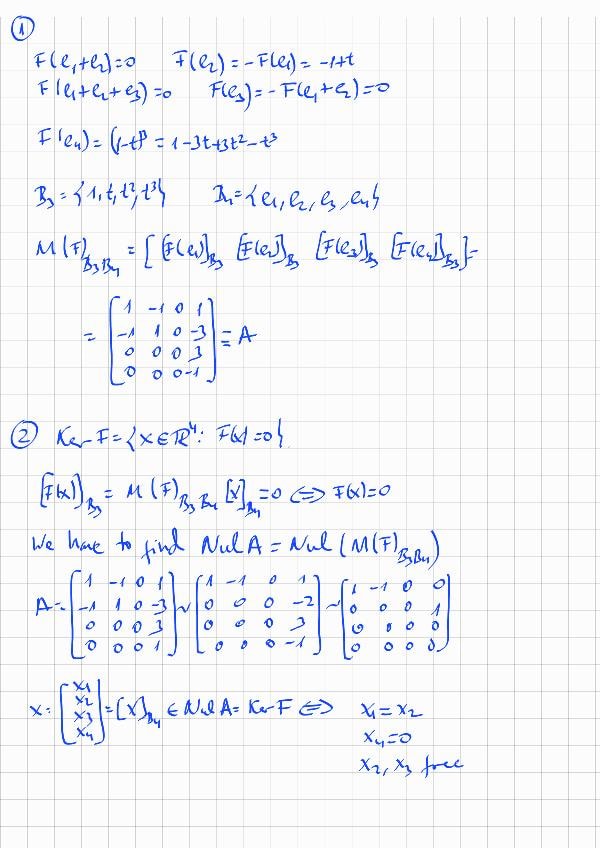 ①
F(e₁+e₂)=0 F(e₂)=-F(e₁)=-1+t
F(e₁+e₂+e₃)=0 F(e₃)=-F(e₁+e₂)=0
F(e₄)=(1-t)³=1-3t+3t²-t³
B₃={1,t,t²,t³} B₄={e₁,e₂,e₃,e₄}
M(F)_{B₃B₄} = [[F(e₁)]_{B₃} [F(e₂)]_{B₃} [F(e₃)]_{B₃} [F(e₄)]_{B₃}]=
= [1 -1 0 1
-1 1 0 -3
0 0 0 3
0 0 0 -1] = A
② Ker F={x∈ℝ⁴: F(x)=0}
[F(x)]_{B₃} = M(F)_{B₃B₄} [x]_{B₄}=0 ⇔ F(x)=0
We have to find Nul A = Nul (M(F)_{B₃B₄})
A= [1 -1 0 1 ~ [1 -1 0 1 ~ [1 -1 0 0
-1 1 0 -3 0 0 0 -2 0 0 0 1
0 0 0 3 0 0 0 3 0 0 0 0
0 0 0 1] 0 0 0 -1] 0 0 0 0]
x= [x₁ x₂ x₃ x₄] = [x]_{B₄} ∈ Nul A = Ker F ⇔ x₁=x₂
x₄=0
x₂, x₃ free